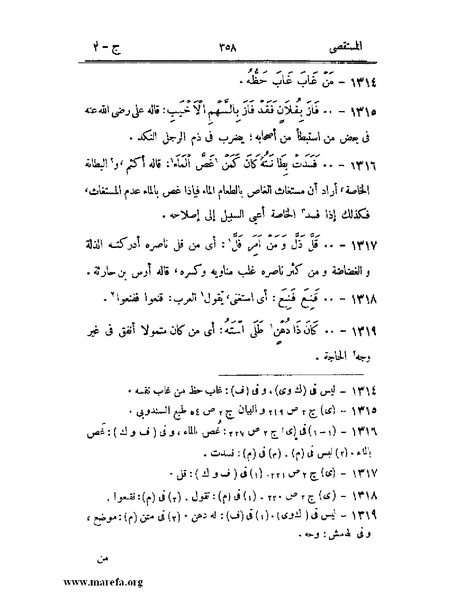 المستقصى ٣٥٨ ج - ٢
١٣١٤ - مَنْ غَابَ غَابَ حَظُّهُ .
١٣١٥ - ٠٠ فَازَ بِفُلَانٍ فَقَدْ فَازَ بِالسَّهْمِ الْأَخْيَبِ: قاله على رضى الله عنه
فى بعض من استبطأ من أصحابه؛ يضرب فى ذم الرجل النكد .
١٣١٦ - ٠٠ فَسَدَتْ بِطَانَتُهُ كَانَ كَمَنْ ١غَصَّ الْمَاءَ١: قاله أكثم، و٢ البطانة
الخاصة، أراد أن مستغاث الغاص بالطعام الماء فإذا غص بالماء عدم المستغاث،
فكذلك إذا فسد٣ الخاصة أعيى السبيل إلى إصلاحه .
١٣١٧ - ٠٠ قَلَّ ذَلَّ وَ مَنْ أَمِرَ فَلَّ١: أى من قل ناصره أدركته الذلة
و الغضاضة و من كثر ناصره غلب مناويه وكسره، قاله أوس بن حارثة .
١٣١٨ - ٠٠ قَنِعَ فَنِعَ: أى استغنى، يقول١ العرب: قنعوا ففنعوا٢ .
١٣١٩ - ٠٠ كَانَ ذَا دُهْنٍ١ طَلَى اسْتَهُ: أى من كان متمولا أنفق فى غير
وجه٢ الحاجة .
١٣١٤ - ليس فى (ك وى)، و فى (ف): غاب حظ من غاب نفسه .
١٣١٥ - (ى) ج ٢ ص ٢١٩ و البيان ج ٢ ص ٥٤ طبع السندوبى .
١٣١٦ - (١-١) فى (ى) ج ٢ ص ٢٢٧: غُص بالماء، و فى (ف و ك): غَص
بالماء . (٢) ليس فى (م) . (٣) فى (م): فسدت .
١٣١٧ - (ى) ج ٢ ص ٢٢١ . (١) فى (ف و ك): قل .
١٣١٨ - (ى) ج ٢ ص ٢٢٠ . (١) فى (م): تقول . (٢) فى (م): فقنعوا .
١٣١٩ - ليس فى (ك وى) . (١) فى (ف): له دهن . (٢) فى متن (م): موضع،
و فى الهامش: وجه .
من
www.marefa.org